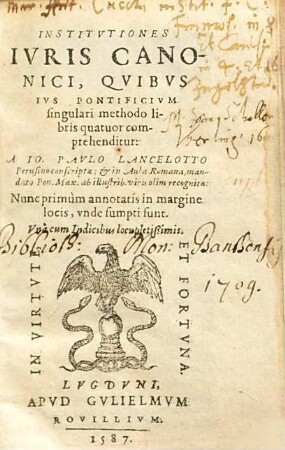 INSTITVTIONES
IVRIS CANO-
NICI, QVIBVS
IVS PONTIFICIVM
singulari methodo li-
bris quatuor com-
prehenditur:
A IO. PAVLO LANCELOTTO
Perusino conscriptæ: & in Aula Romana, man-
dato Pon. Max. ab illustrib. viris olim recognitæ:
Nunc primùm annotatis in margine
locis, vnde sumpti sunt.
Vnà cum Indicibus locupletissimis.
Biblioth: Mon:
1709.
IN VIRTVTE
ET FORTVNA.
LVGDVNI,
APVD GVLIELMVM
ROVILLIVM.
1587.